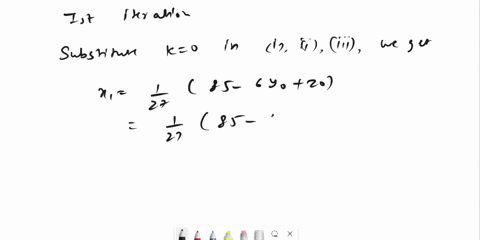 Ist iteration
Substitute k=0 in (i), (ii), (iii), we get
x₁ = 1/27 (85 - 6y₀ + z₀)
= 1/27 (85 -